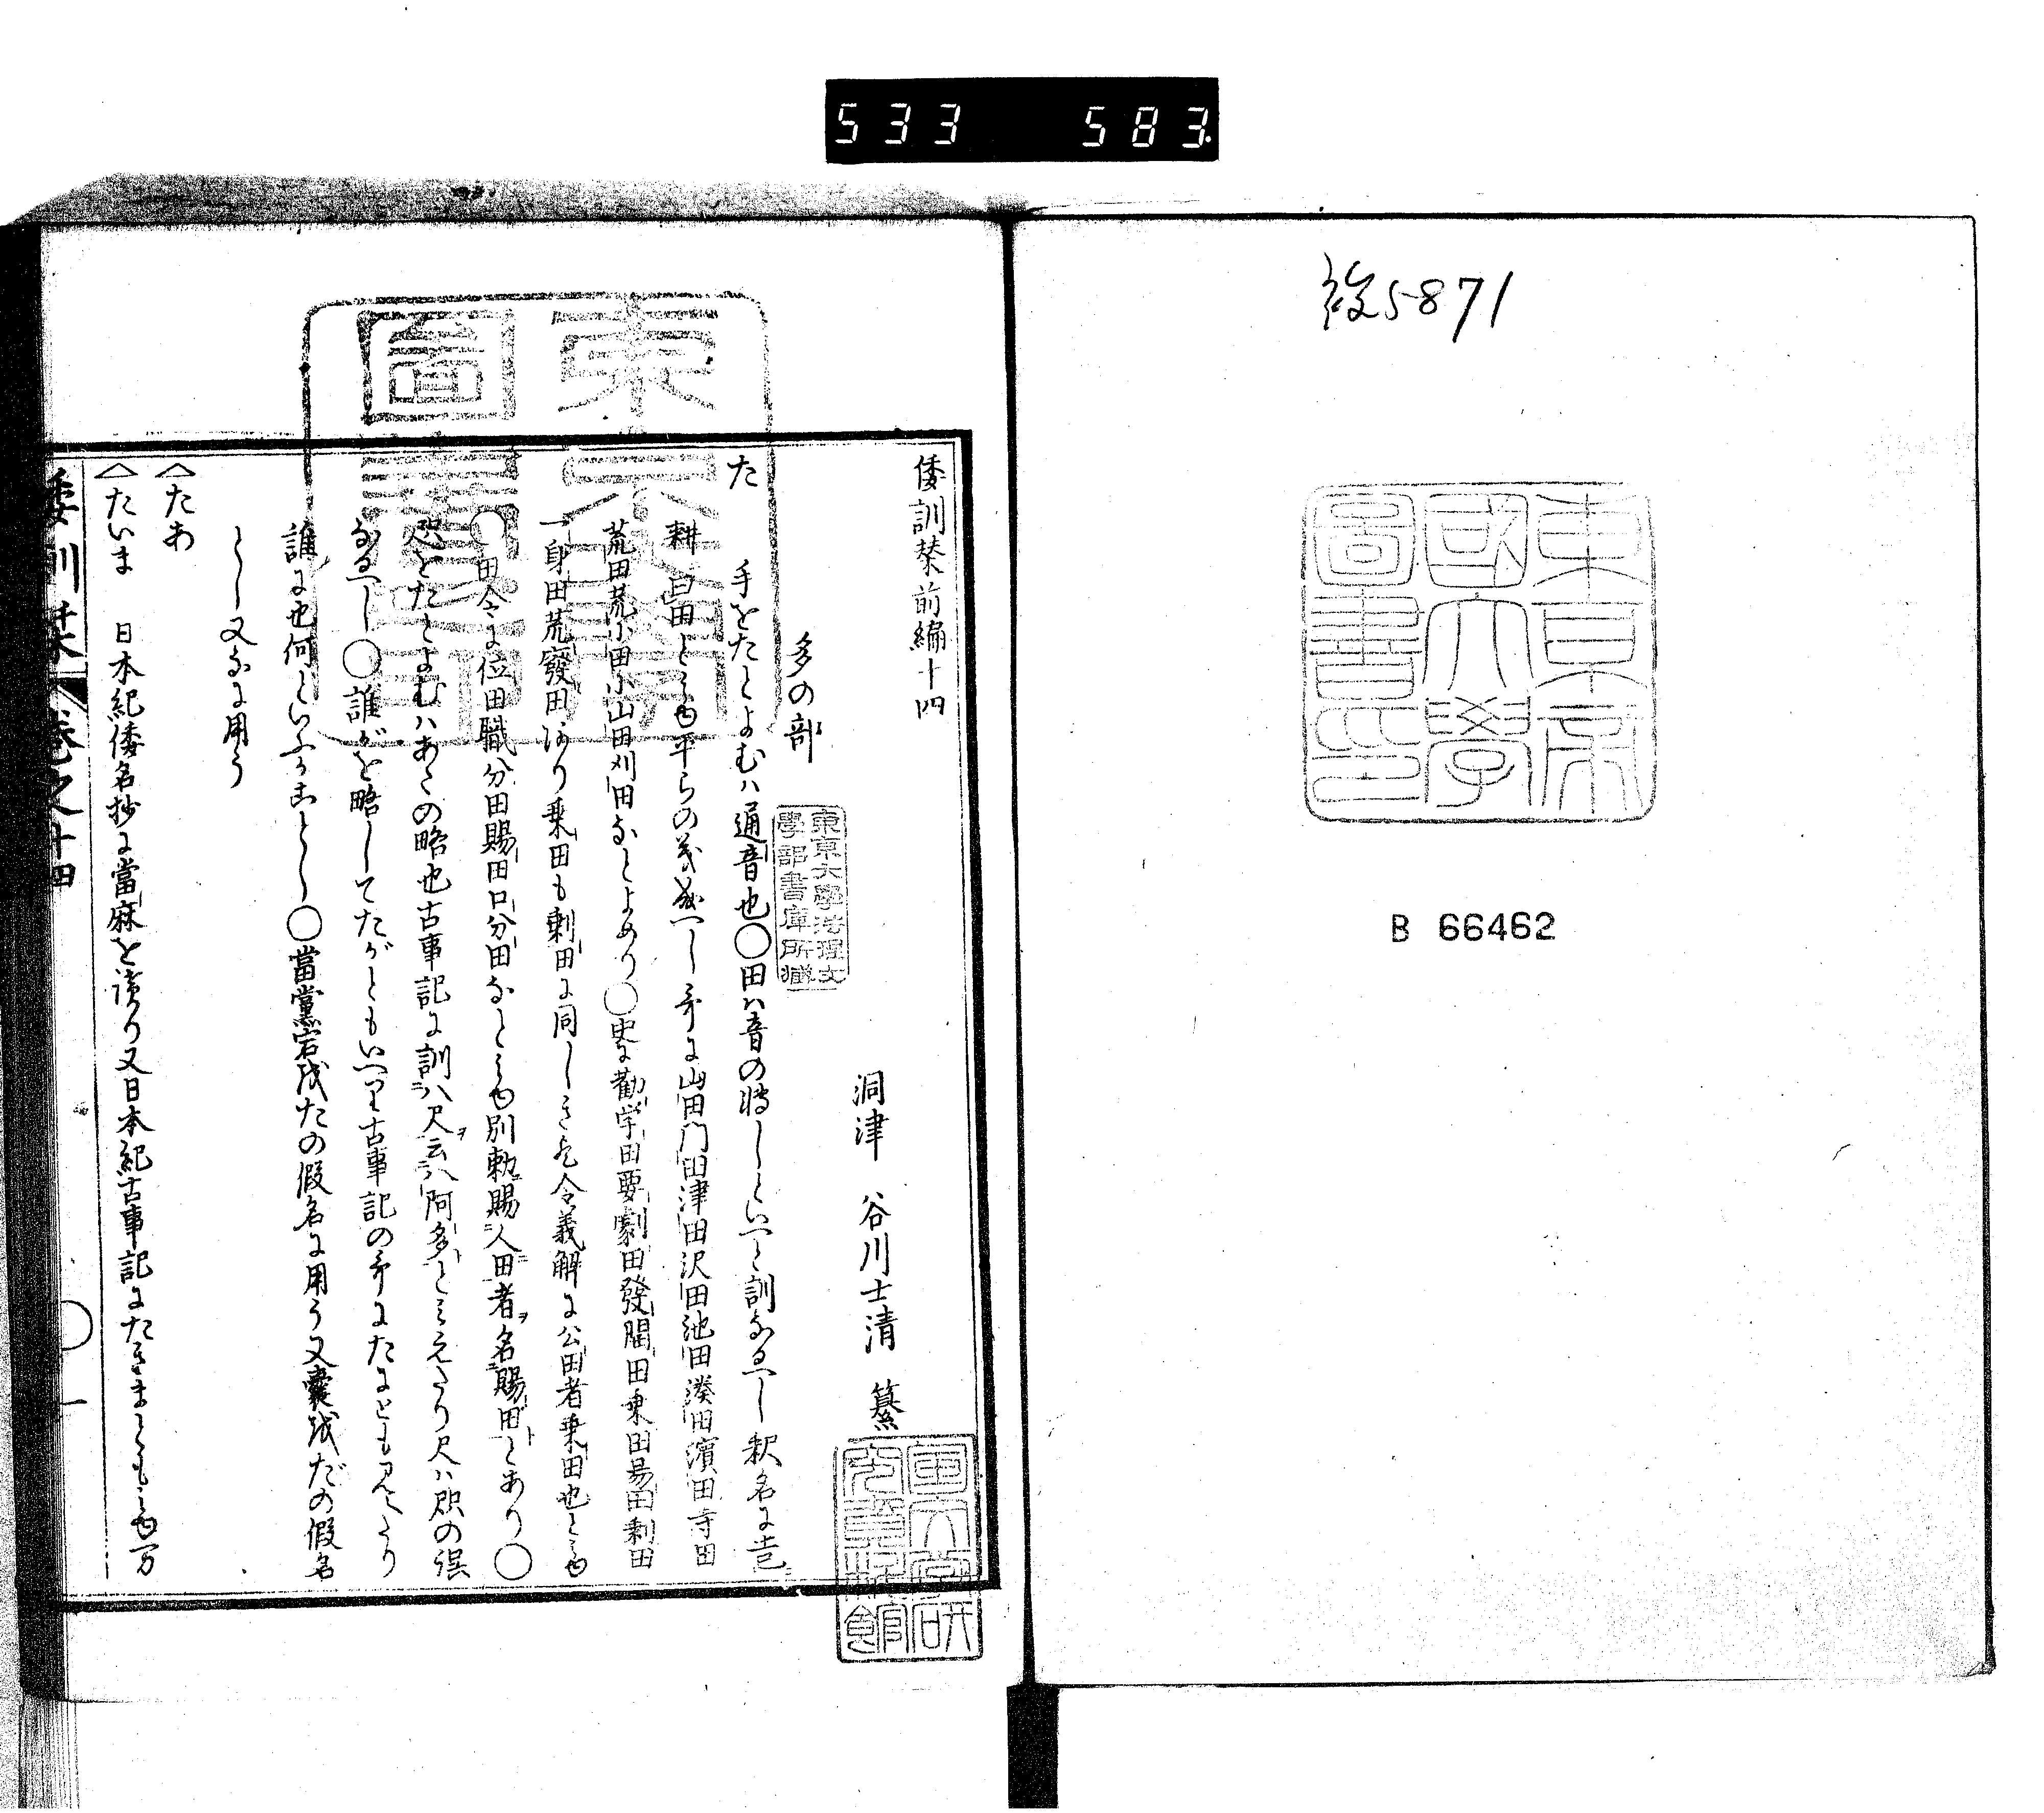 533 583
設5871
東京帝
國大學
圖書印
B 66462
倭訓栞前編十四
洞津 谷川士清 纂
多の部
東京大學法理文
學部書庫所藏
た 手をたとよむハ通音也〇田ハ音の轉しといへと訓なるへし釈名に已
耕曰田とみゆ平らの義なへし哥に山田門田津田沢田池田湊田濱田寺田
荒田荒小田小山田刈田なとよめり〇史に勸学田要劇田發開田乗田易田剰田
一身田荒廢田あり乗田も剰田に同しき也令義解に公田者乗田也とみゆ
〇田令に位田職分田賜田口分田なとみゆ別勅賜人田者名賜田とあり〇
咫をたとよむハあたの略也古事記に訓八尺云八阿多とみえたり尺ハ咫の誤
なるへし〇誰がを略してたがともいへり古事記の哥にたにとも見えたり
誰に也何といふかことし〇當黨宕哉たの假名に用う又嚢哉だの假名
とし又なに用う
△たあ
△たいま 日本紀倭名抄に當麻を讀り又日本紀古事記にたきまともみゆ万
倭訓栞 卷之十四 〇一